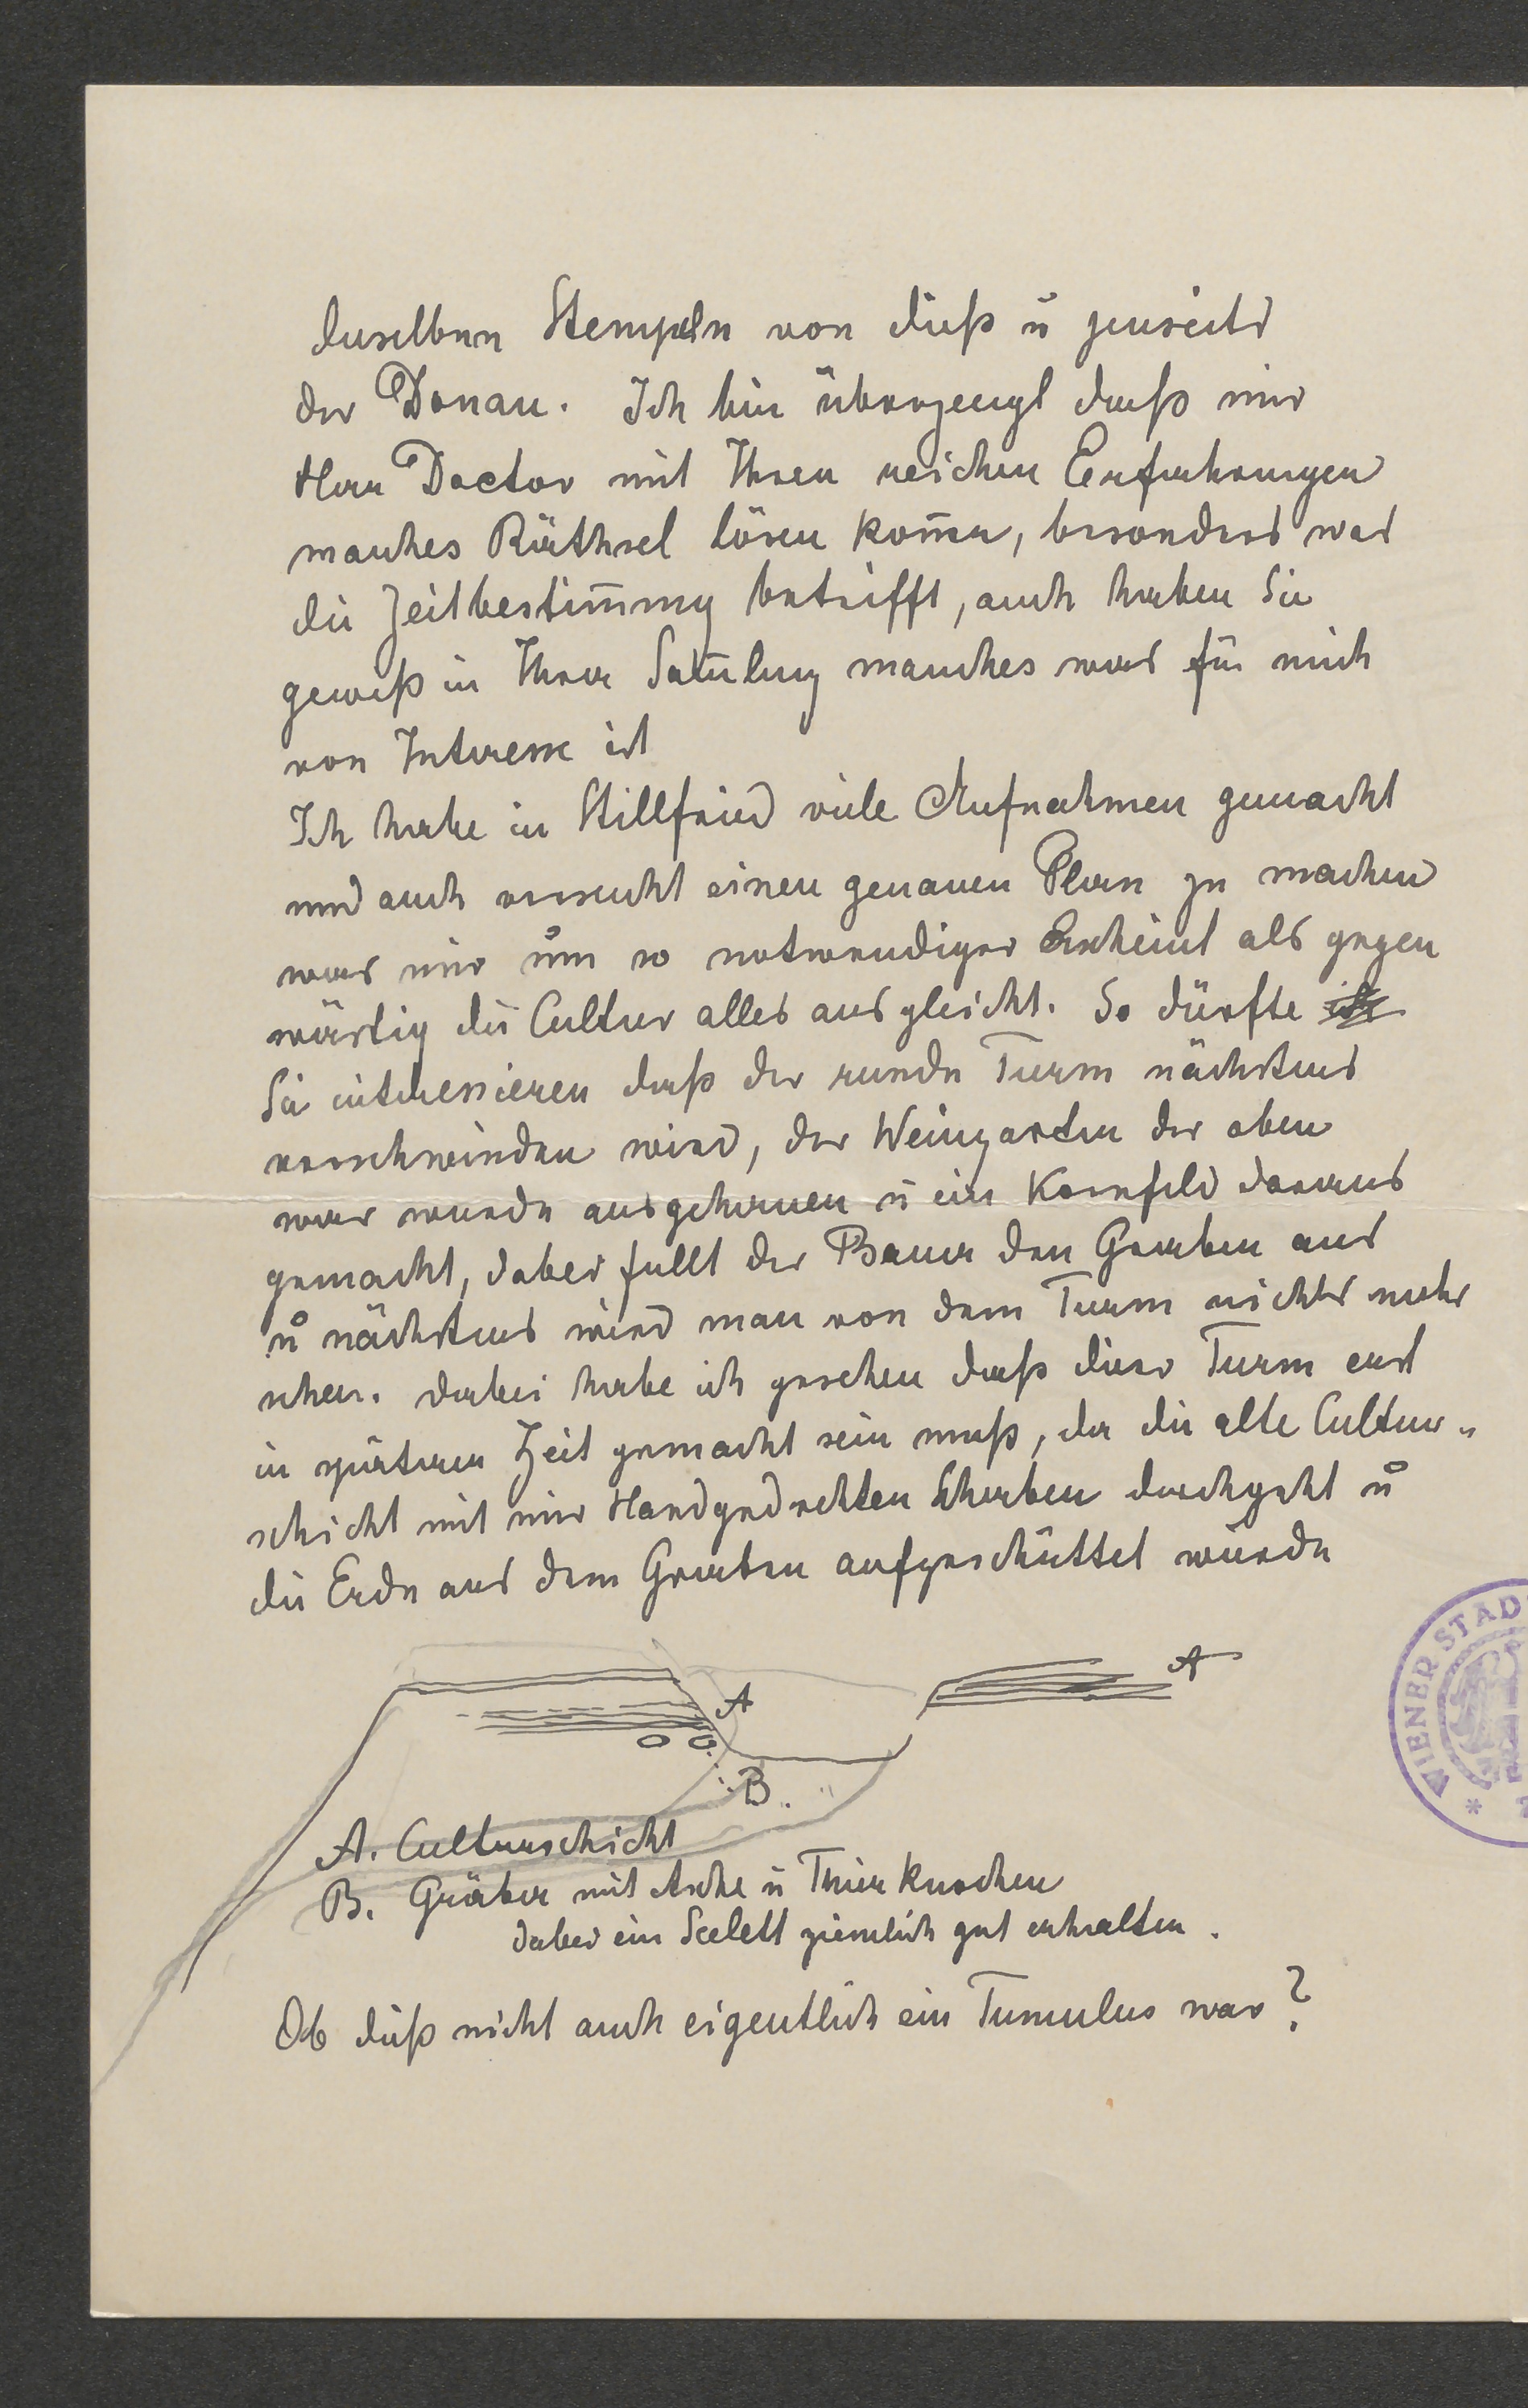 deselben Stempeln von dieß ŭ jenseits
der Donau. Ich bin überzeugt daß mir
Herr Doctor mit Ihren reichen Erfahrungen
manches Räthsel lösen kom̅en, besonders was
die Zeitbestim̅ung betrifft, auch haben Sie
gewiß in Ihrer Sam̅lung manches was für mich
von Interesse ist
Ich habe in Stillfried viele Aufnahmen gemacht
und auch versucht einen genauen Plan zu machen
was mir um so notwendiger Erscheint als gegen
wärtig die Cultur alles ausgleicht. So dürfte
Sie interessieren daß der runde Turm nächstens
verschwinden wird, der Weingarten der oben
war wurde ausgehauen ŭ ein Kornfeld daraus
gemacht, dabei füllt der Bauer den Graben aus
ů nächstens wird man von dem Turm nichts mehr
sehen. dabei habe ich gesehen daß dieser Turm erst
in späterer Zeit gemacht sein muß, da die alte Cultur-
schicht mit nur Handgedrehten Scherben durchgeht ů
die Erde aus dem Graben aufgeschüttet wurde
A
A
B.
A. Culturschicht
B. Gräber mit Asche ŭ Thierknochen
dabei ein Scelett ziemlich gut erhalten.
Ob dieß nicht auch eigentlich ein Tumulus war?
WIENER STAD